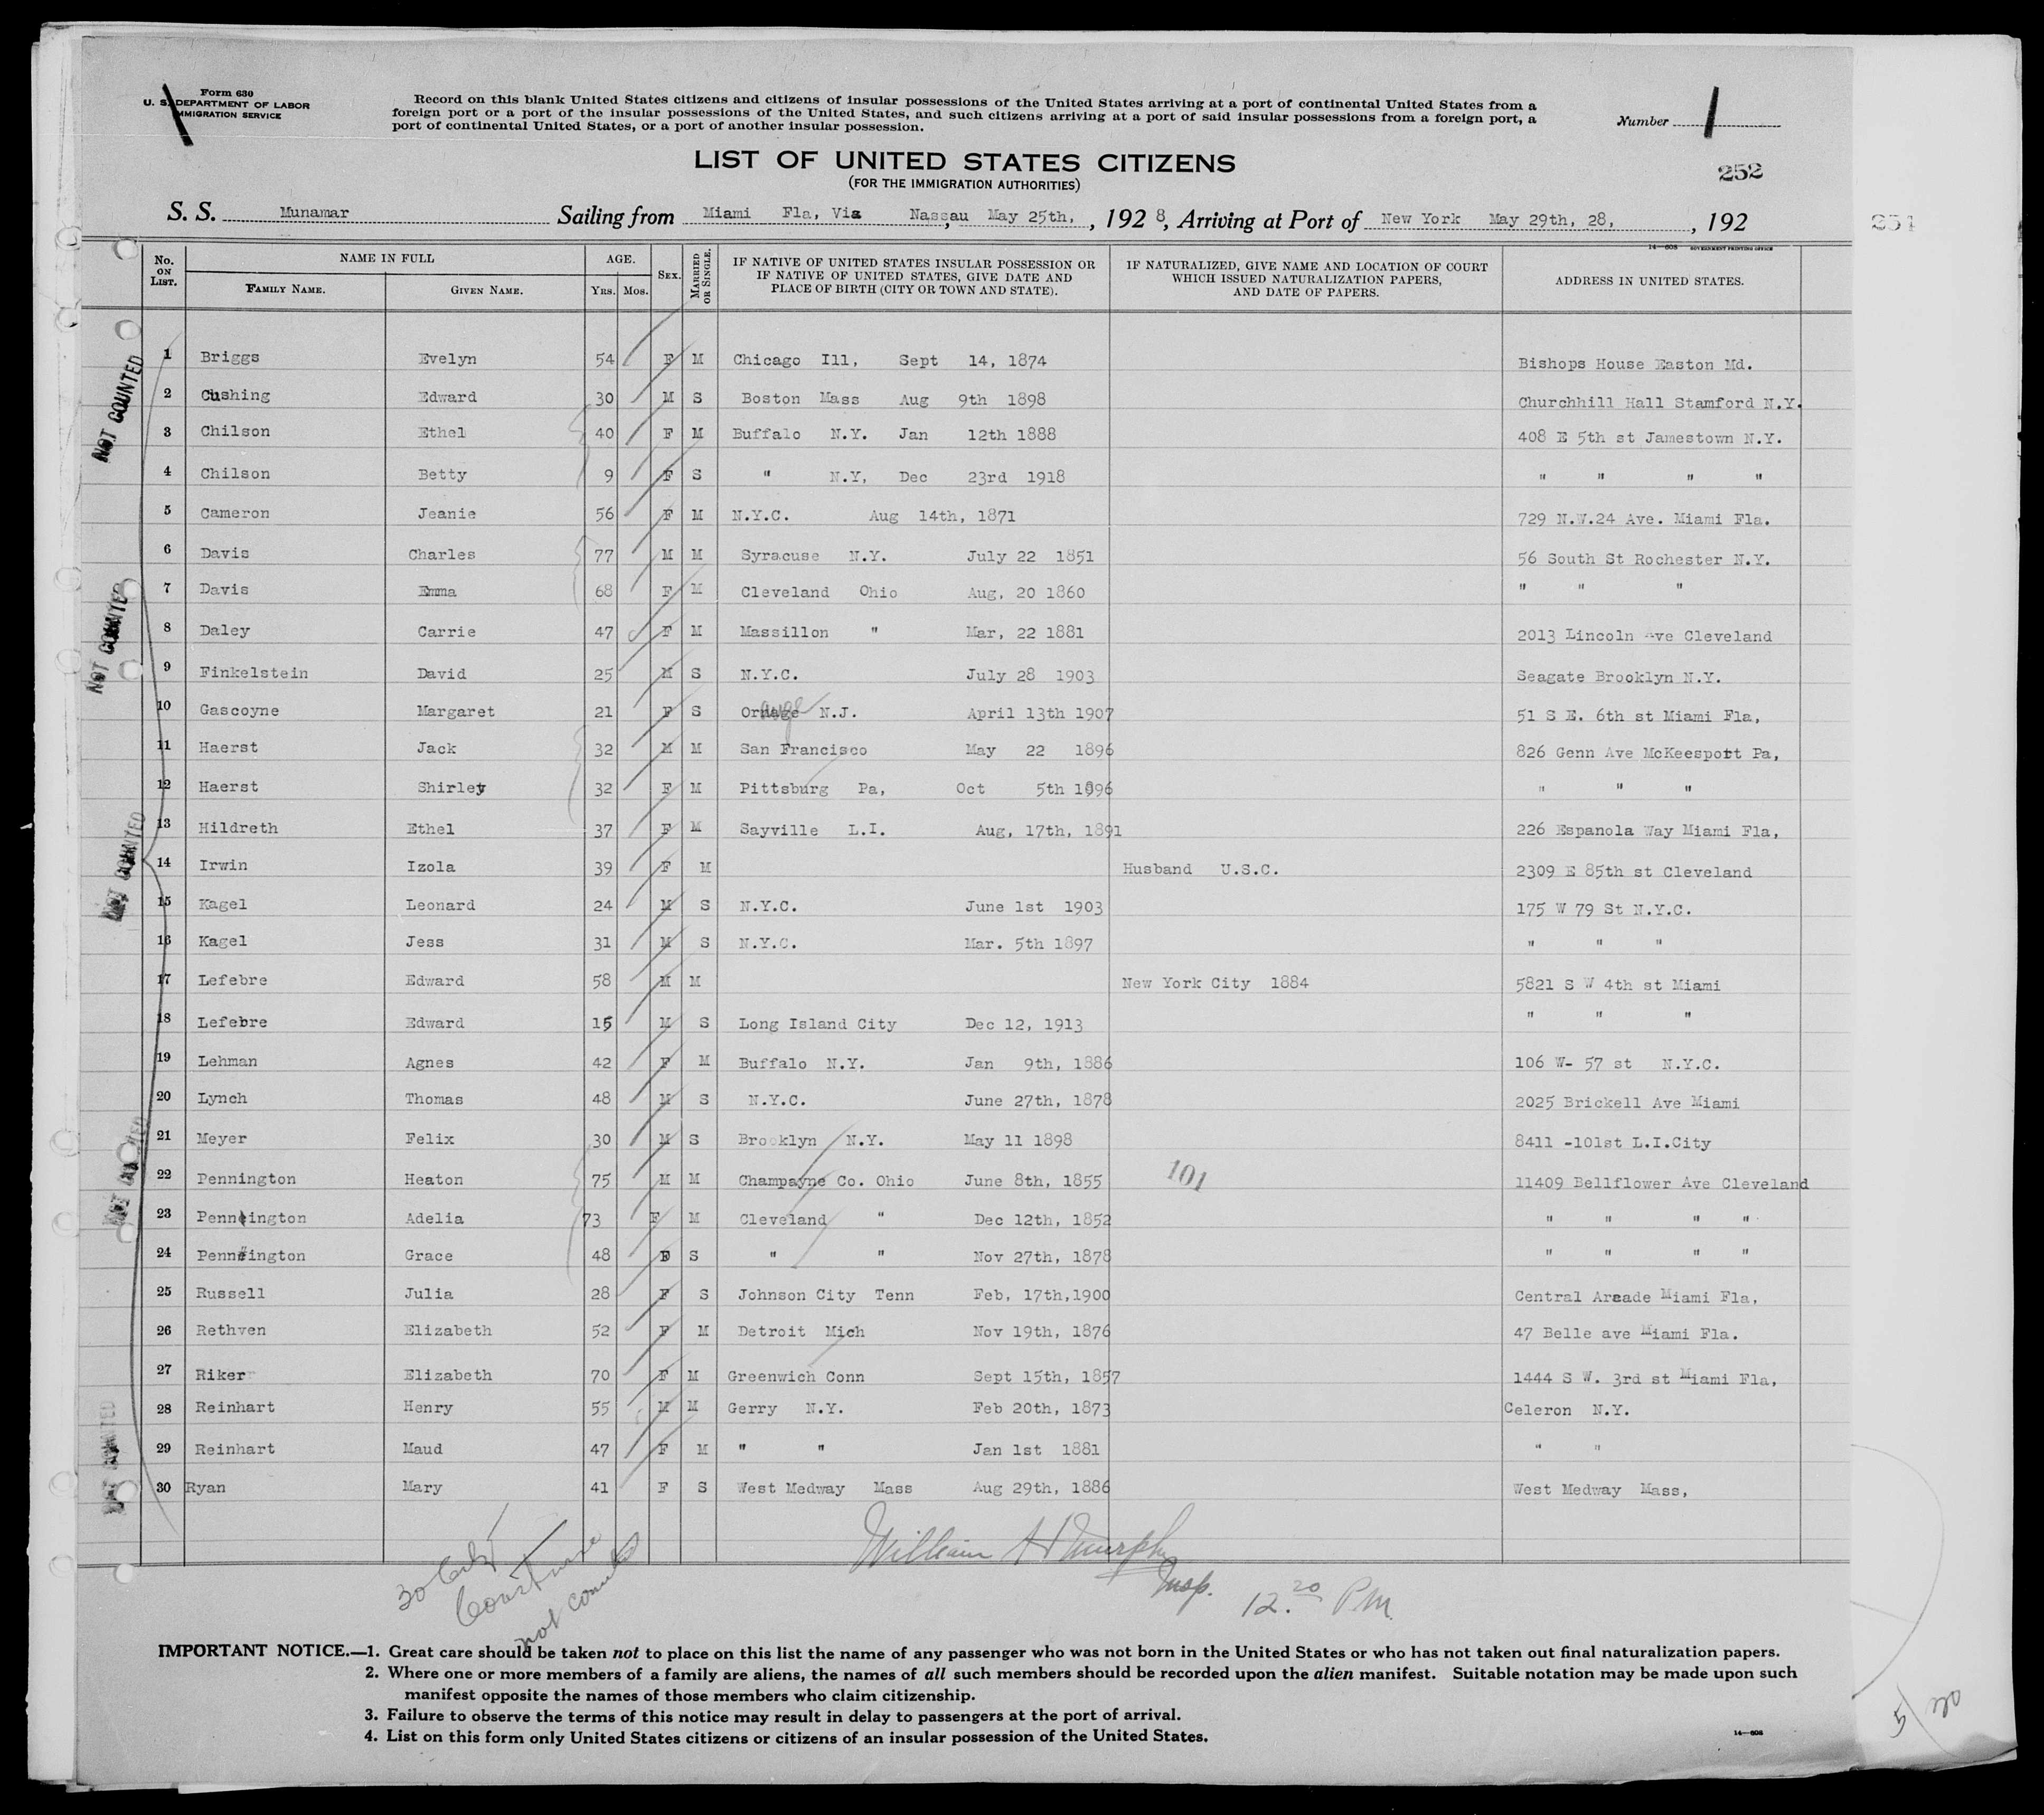 Form 630
U. S. DEPARTMENT OF LABOR
IMMIGRATION SERVICE
Record on this blank United States citizens and citizens of insular possessions of the United States arriving at a port of continental United States from a
foreign port or a port of the insular possessions of the United States, and such citizens arriving at a port of said insular possessions from a foreign port, a
port of continental United States, or a port of another insular possession.
Number
LIST OF UNITED STATES CITIZENS
(FOR THE IMMIGRATION AUTHORITIES)
252
S. S. Munamar Sailing from Miami Fla, Via Nassau, May 25th, , 1928, Arriving at Port of New York May 29th, 28, , 192
251
14—608 GOVERNMENT PRINTING OFFICE
No. ON LIST. NAME IN FULL FAMILY NAME. GIVEN NAME. AGE. YRS. MOS. SEX. MARRIED OR SINGLE. IF NATIVE OF UNITED STATES INSULAR POSSESSION OR IF NATIVE OF UNITED STATES, GIVE DATE AND PLACE OF BIRTH (CITY OR TOWN AND STATE). IF NATURALIZED, GIVE NAME AND LOCATION OF COURT WHICH ISSUED NATURALIZATION PAPERS, AND DATE OF PAPERS. ADDRESS IN UNITED STATES.
1 Briggs Evelyn 54 F M Chicago Ill, Sept 14, 1874 Bishops House Easton Md.
2 Cushing Edward 30 M S Boston Mass Aug 9th 1898 Churchhill Hall Stamford N.Y.
3 Chilson Ethel 40 F M Buffalo N.Y. Jan 12th 1888 408 E 5th st Jamestown N.Y.
4 Chilson Betty 9 F S " N.Y, Dec 23rd 1918 " " " "
5 Cameron Jeanie 56 F M N.Y.C. Aug 14th, 1871 729 N.W.24 Ave. Miami Fla.
6 Davis Charles 77 M M Syracuse N.Y. July 22 1851 56 South St Rochester N.Y.
7 Davis Emma 68 F M Cleveland Ohio Aug, 20 1860 " " "
8 Daley Carrie 47 F M Massillon " Mar, 22 1881 2013 Lincoln Ave Cleveland
9 Finkelstein David 25 M S N.Y.C. July 28 1903 Seagate Brooklyn N.Y.
10 Gascoyne Margaret 21 F S Ornage ange N.J. April 13th 1907 51 S E. 6th st Miami Fla,
11 Haerst Jack 32 M M San Francisco May 22 1896 826 Genn Ave McKeesport Pa,
12 Haerst Shirley 32 F M Pittsburg Pa, Oct 5th 1896 " " "
13 Hildreth Ethel 37 F M Sayville L.I. Aug, 17th, 1891 226 Espanola Way Miami Fla,
14 Irwin Izola 39 F M Husband U.S.C. 2309 E 85th st Cleveland
15 Kagel Leonard 24 M S N.Y.C. June 1st 1903 175 W 79 St N.Y.C.
16 Kagel Jess 31 M S N.Y.C. Mar. 5th 1897 " " "
17 Lefebre Edward 58 M M New York City 1884 5821 S W 4th st Miami
18 Lefebre Edward 15 M S Long Island City Dec 12, 1913 " " "
19 Lehman Agnes 42 F M Buffalo N.Y. Jan 9th, 1886 106 W- 57 st N.Y.C.
20 Lynch Thomas 48 M S N.Y.C. June 27th, 1878 2025 Brickell Ave Miami
21 Meyer Felix 30 M S Brooklyn N.Y. May 11 1898 8411 -101st L.I.City
22 Pennington Heaton 75 M M Champayne Co. Ohio June 8th, 1855 101 11409 Bellflower Ave Cleveland
23 Pennington Adelia 73 F M Cleveland " Dec 12th, 1852 " " " "
24 Pennington Grace 48 F S " " Nov 27th, 1878 " " " "
25 Russell Julia 28 F S Johnson City Tenn Feb, 17th,1900 Central Arcade Miami Fla,
26 Rethven Elizabeth 52 F M Detroit Mich Nov 19th, 1876 47 Belle ave Miami Fla.
27 Riker Elizabeth 70 F M Greenwich Conn Sept 15th, 1857 1444 S W. 3rd st Miami Fla,
28 Reinhart Henry 55 M M Gerry N.Y. Feb 20th, 1873 Celeron N.Y.
29 Reinhart Maud 47 F M " " Jan 1st 1881 " "
30 Ryan Mary 41 F S West Medway Mass Aug 29th, 1886 West Medway Mass,
NOT COUNTED
NOT COUNTED
NOT COUNTED
NOT COUNTED
NOT COUNTED
William H Murphy
Insp. 12.20 P.M.
30
not counted
IMPORTANT NOTICE.—1. Great care should be taken not to place on this list the name of any passenger who was not born in the United States or who has not taken out final naturalization papers.
2. Where one or more members of a family are aliens, the names of all such members should be recorded upon the alien manifest. Suitable notation may be made upon such
manifest opposite the names of those members who claim citizenship.
3. Failure to observe the terms of this notice may result in delay to passengers at the port of arrival.
4. List on this form only United States citizens or citizens of an insular possession of the United States.
14—608
5/30